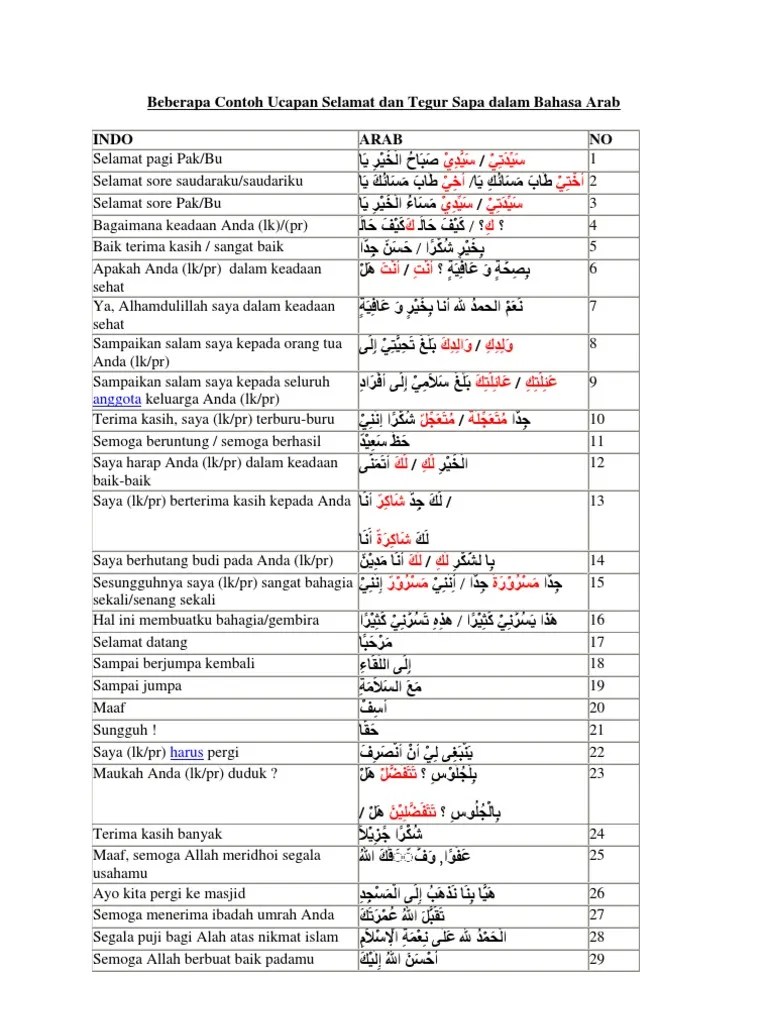 Beberapa Contoh Ucapan Selamat dan Tegur Sapa dalam Bahasa Arab
INDO ARAB NO
Selamat pagi Pak/Bu صَبَاحُ الْخَيْرِ يَا سَيِّدِيْ / سَيِّدَتِيْ 1
Selamat sore saudaraku/saudariku طَابَ مَسَائُكَ يَا أَخِيْ /طَابَ مَسَائُكِ يَا أُخْتِيْ 2
Selamat sore Pak/Bu مَسَاءُ الْخَيْرِ يَا سَيِّدِيْ / سَيِّدَتِيْ 3
Bagaimana keadaan Anda (lk)/(pr) كَيْفَ حَالُكَ ؟ / كَيْفَ حَالُكِ ؟ 4
Baik terima kasih / sangat baik بِخَيْرٍ شُكْرًا / حَسَنٌ جِدًّا 5
Apakah Anda (lk/pr) dalam keadaan
sehat هَلْ أَنْتَ / أَنْتِ بِصِحَّةٍ وَ عَافِيَةٍ ؟ 6
Ya, Alhamdulillah saya dalam keadaan
sehat نَعَمْ الحمدُ لله أنا بِخَيْرٍ وَ عَافِيَةٍ 7
Sampaikan salam saya kepada orang tua
Anda (lk/pr) بَلِّغْ تَحِيَّتِيْ إِلَى وَالِدِكَ / وَلِدِكِ 8
Sampaikan salam saya kepada seluruh
anggota keluarga Anda (lk/pr) بَلِّغْ سَلاَمِيْ إِلَى أَفْرَادِ عَائِلَتِكَ / عَئِلَتِكِ 9
Terima kasih, saya (lk/pr) terburu-buru شُكْرًا إِنَنِيْ مُتَعَجِّلٌ / مُتَعَجِّلَةٌ جِدًّا 10
Semoga beruntung / semoga berhasil حَظٌ سَعِيْدٌ 11
Saya harap Anda (lk/pr) dalam keadaan
baik-baik أَتَمَنَّى لَكَ / لَكِ الْخَيْرِ 12
Saya (lk/pr) berterima kasih kepada Anda أَنَا شَاكِرٌ جِدٌّ لَكَ /
أَنَا شَاكِرَةٌ لَكَ 13
Saya berhutang budi pada Anda (lk/pr) أَنَا مَدِيْنٌ لَكَ / لَكِ بِا لشُّكْرِ 14
Sesungguhnya saya (lk/pr) sangat bahagia
sekali/senang sekali إِنَنِيْ مَسْرُوْرٌ جِدًّا / أَنَنِيْ مَسْرُوْرَةٌ جِدًّا 15
Hal ini membuatku bahagia/gembira هَذَا يَسُرُّنِيْ كَثِيْرًا / هَذِهِ تَسُرُّنِيْ كَثِيْرًا 16
Selamat datang مَرْحَبًا 17
Sampai berjumpa kembali إِلَى اللِّقَاءِ 18
Sampai jumpa مَعَ السَّلاَمَةِ 19
Maaf أَسِفٌ 20
Sungguh ! حَقًا 21
Saya (lk/pr) harus pergi يَنْبَغِى لِيْ أَنْ أَنْصَرِفَ 22
Maukah Anda (lk/pr) duduk ? هَلْ تَتَفَضَّلْ بِلْجُلُوْسِ ؟
/ هَلْ تَتَفَضَّلِيْنَ بِالْجُلُوسِ ؟ 23
Terima kasih banyak شُكْرًا جَزِيْلاً 24
Maaf, semoga Allah meridhoi segala
usahamu عَفْوًا, وَفَّقَكَ اللهُ 25
Ayo kita pergi ke masjid هَيَّا بِنَا نَذْهَبُ إِلَى الْمَسْجِدِ 26
Semoga menerima ibadah umrah Anda تَقَبَّلَ اللهُ عُمْرَتَكَ 27
Segala puji bagi Alah atas nikmat islam الْحَمْدُ لله عَلَى نِعْمَةِ الْإِسْلاَمِ 28
Semoga Allah berbuat baik padamu أَحْسَنَ اللهُ إِلَيْكَ 29